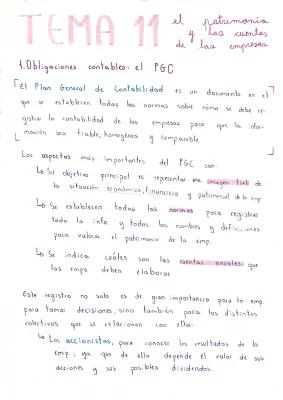 TEMA 11 el patrimonio
y las cuentas
de las empresas
1. Obligaciones contables: el PGC
El Plan General de Contabilidad es un documento en el
que se establecen todas las normas sobre cómo se debe re-
gistrar la contabilidad de las empresas para que la infor-
mación sea fiable, homogénea y comparable.
Los aspectos más importantes del PGC son:
↳ Su objetivo principal es representar una imagen fiel de
la situación económica, financiera y patrimonial de la emp
↳ Se establecen todas las normas para registrar
toda la info. y todos los nombres y definiciones
para valorar el patrimonio de la emp.
↳ Se indica cuáles son las cuentas anuales que
las emps deben elaborar.
Este registro no solo es de gran importancia para la emp.
para tomar decisiones, sino también para los distintos
colectivos que se relacionan con ella:
↳ Los accionistas, para conocer los resultados de la
emp., ya que de ello depende el valor de sus
acciones y sus posibles dividendos.